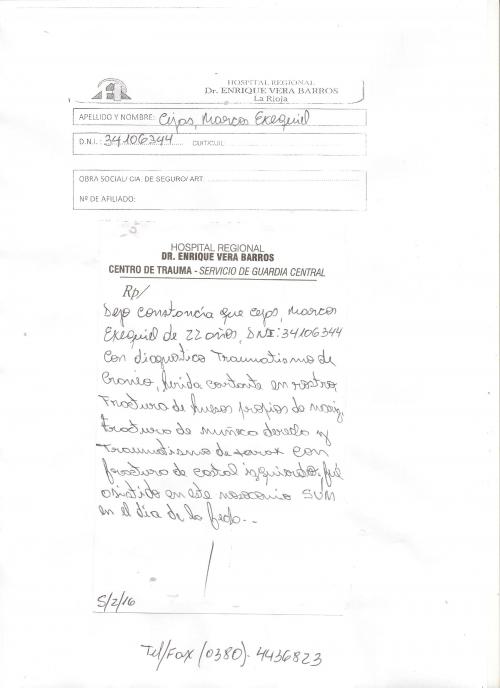 HOSPITAL REGIONAL
Dr. ENRIQUE VERA BARROS
La Rioja
APELLIDO Y NOMBRE: Cejas, Marcos Exequiel
D.N.I.: 34106344 CUIT/CUIL:
OBRA SOCIAL/ CIA. DE SEGURO/ ART:
Nº DE AFILIADO:
HOSPITAL REGIONAL
DR. ENRIQUE VERA BARROS
CENTRO DE TRAUMA - SERVICIO DE GUARDIA CENTRAL
Rp/
Dejo constancia que Cejas, Marcos
Exequiel de 22 años, DNI: 34106344
Con diagnostico Traumatismo de
Craneo, herida cortante en rostro
Fractura de huesos propios de nariz,
Fractura de muñeca derecha y
Traumatismo de torax con
fractura de costal izquierdo, fué
asistido en este nosocomio
en el día de la fecha..
5/2/16
Tel/Fax (0380)-4436823